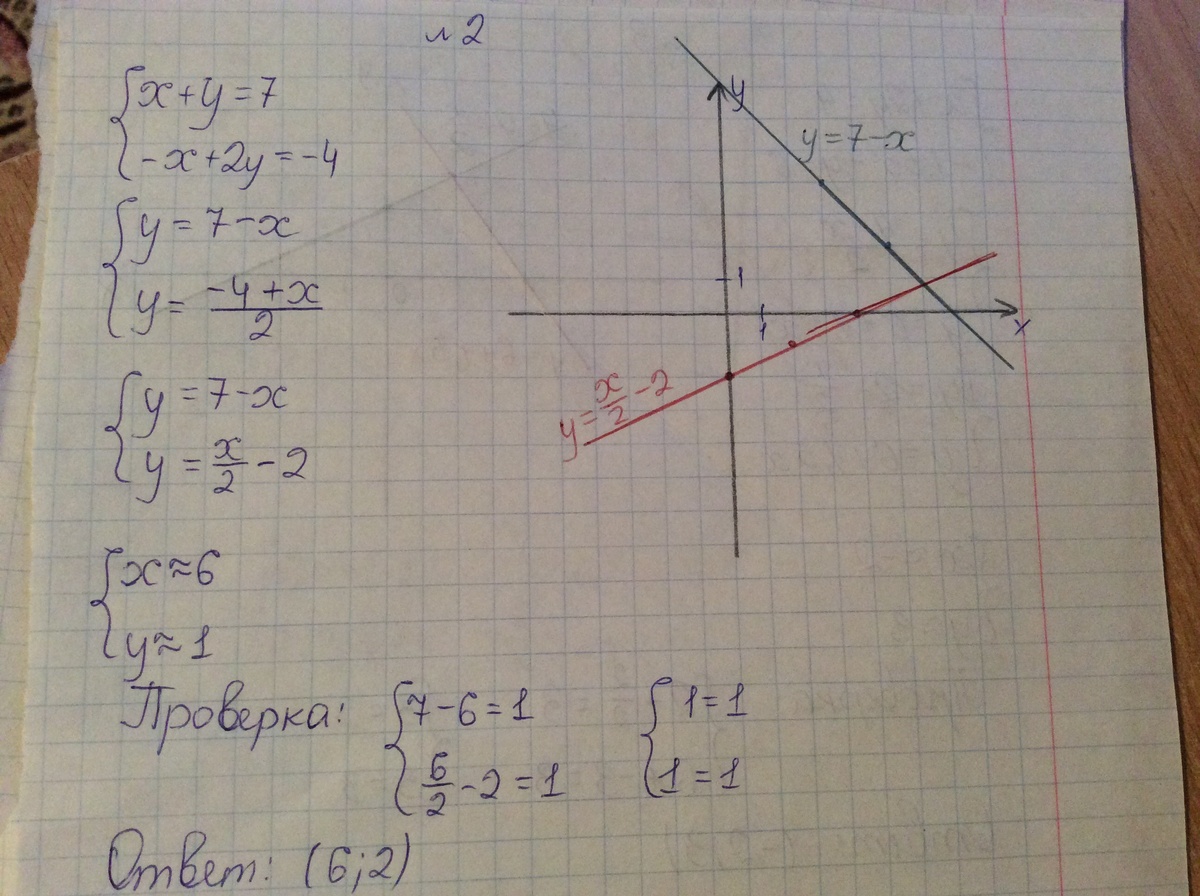 №2
{x+y=7
-x+2y=-4
{y=7-x
y=\frac{-4+x}{2}
{y=7-x
y=\frac{x}{2}-2
{x≈6
y≈1
Проверка: {7-6=1 {1=1
\frac{6}{2}-2=1 1=1
Ответ: (6;2)
y
y=7-x
1
1
x
y=\frac{x}{2}-2